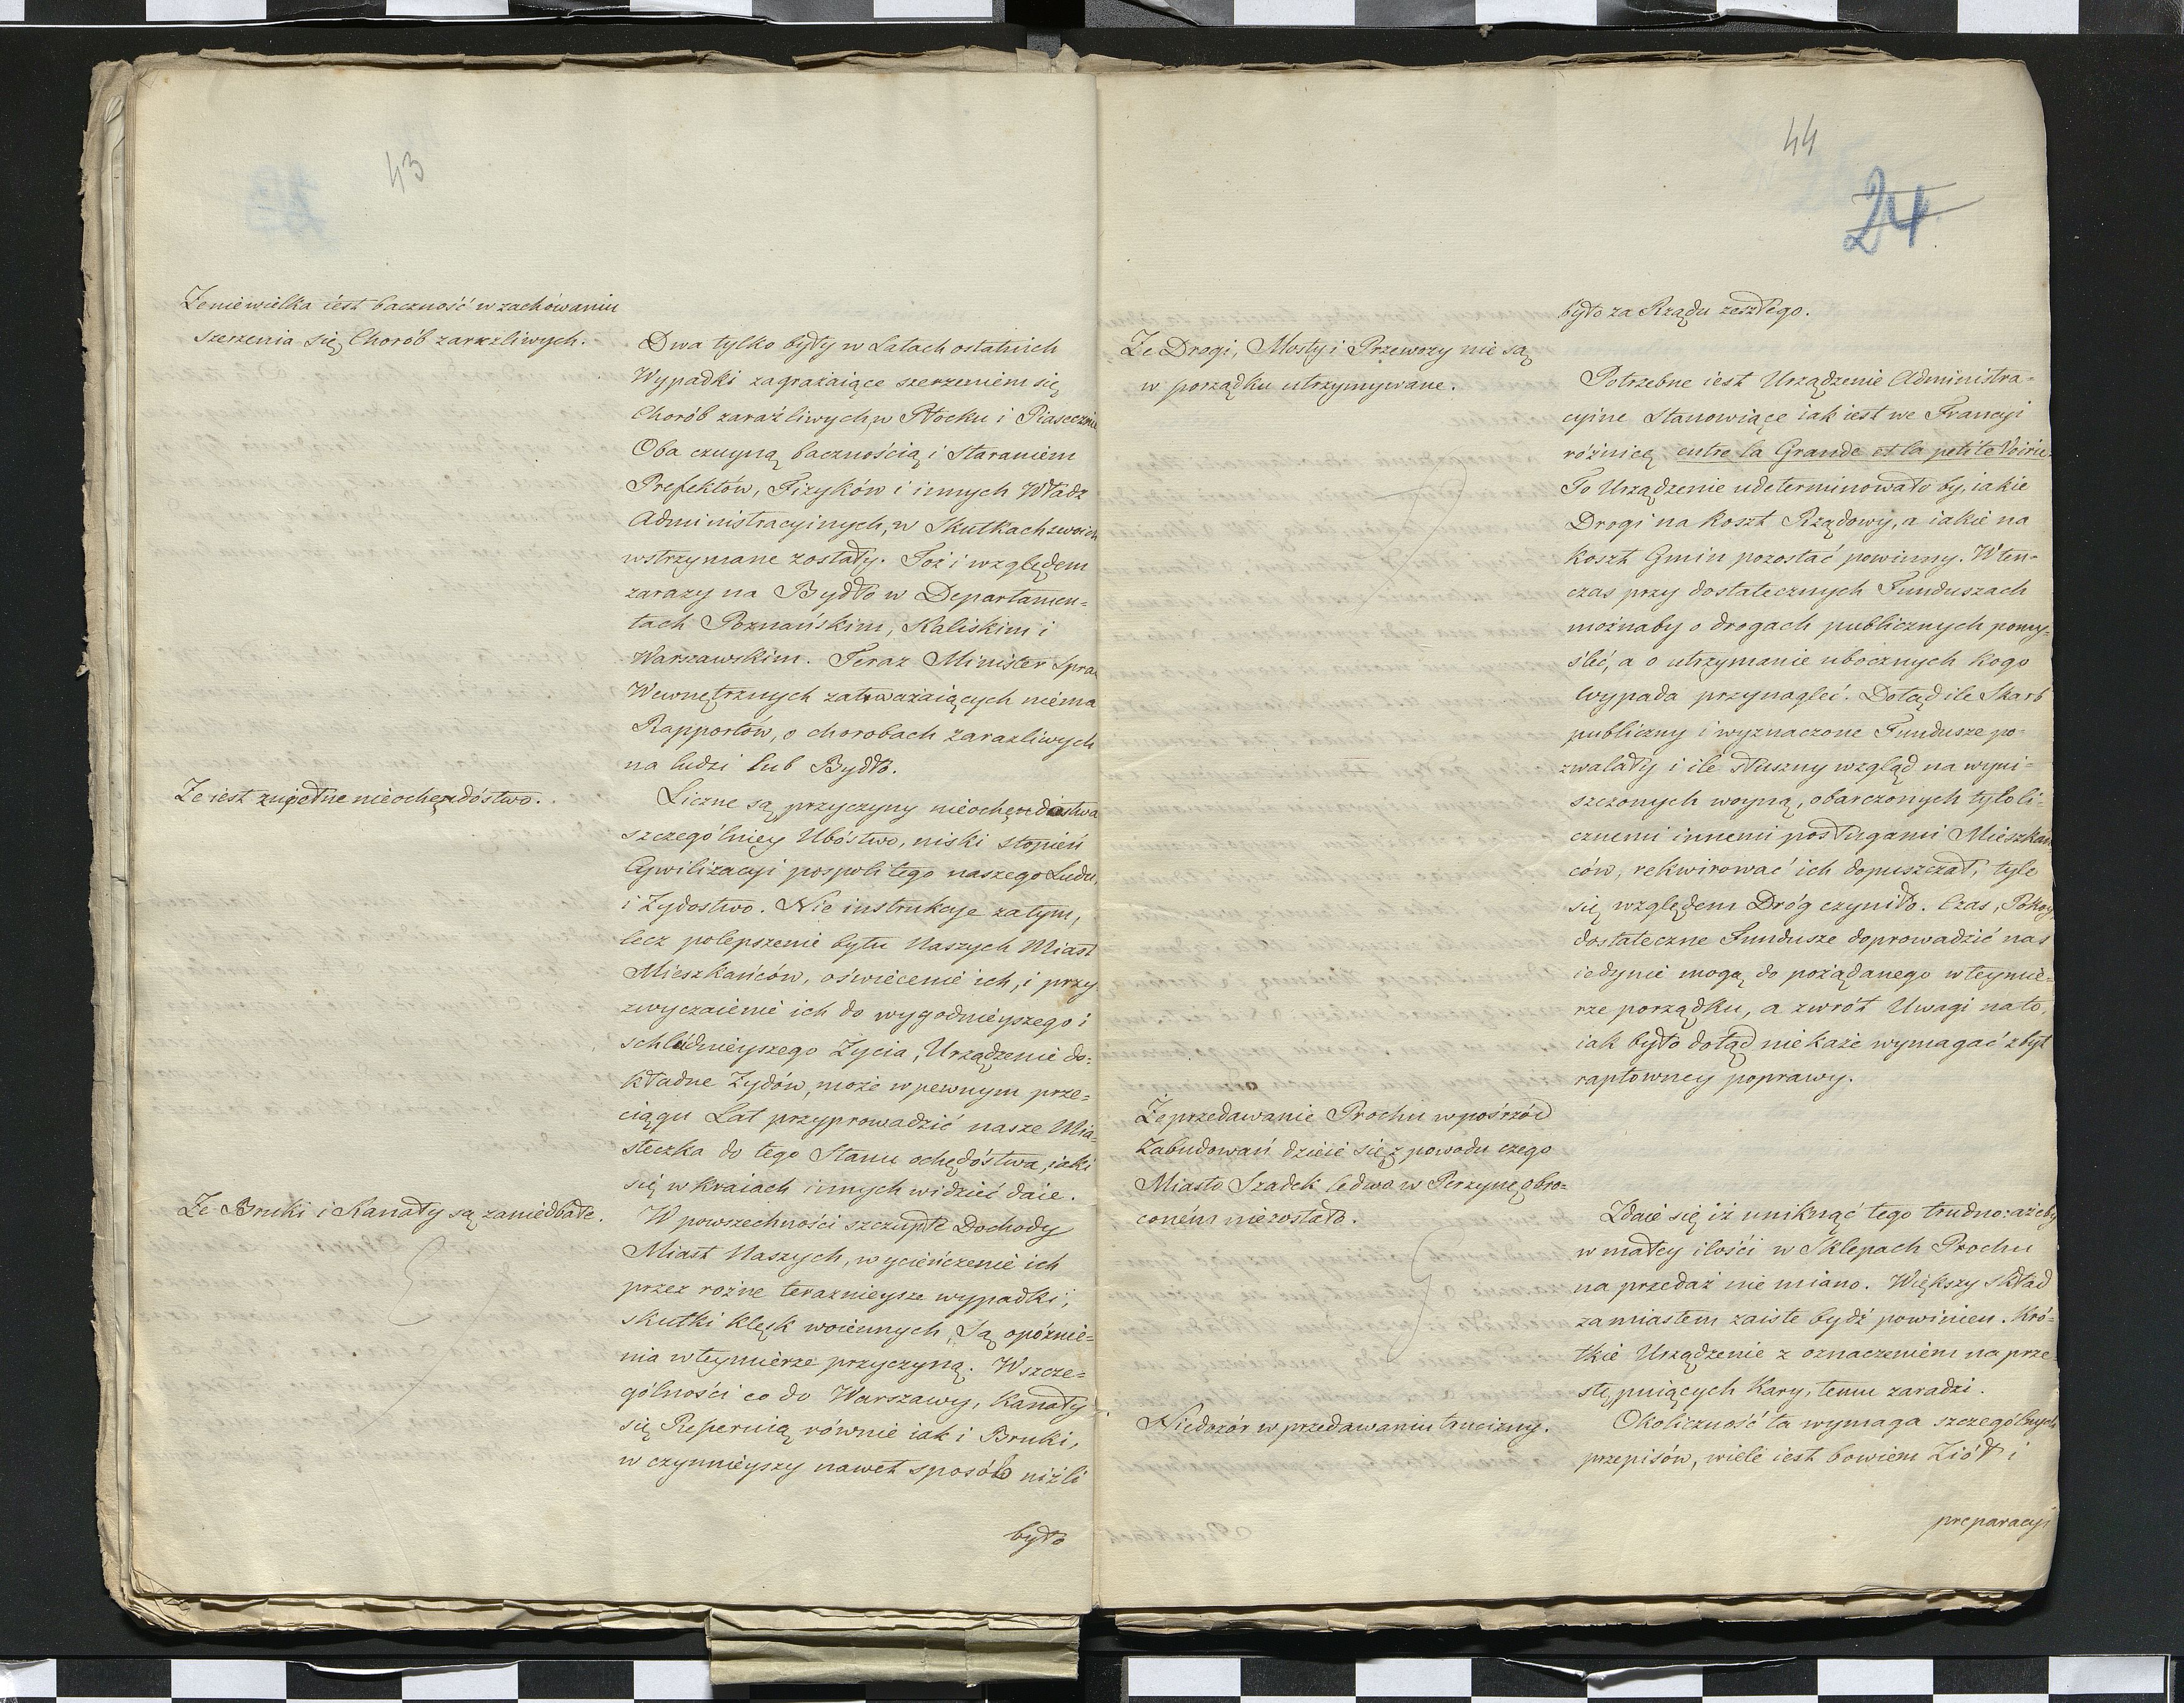 43
Że niewielka iest baczność w zachówaniu
szerzenia się Chorób zaraźliwych.
Dwa tylko były w Latach ostatnich
Wypadki zagrażaiące szerzeniem się
Chorób zaraźliwych, w Płocku i Piasecznie
Oba czuyną bacznością i staraniem
Prefektów, Fizyków i innych Władz
Administracyinych, w Skutkach swoich
wstrzymane zostały. Toż i względem
zarazy na Bydło w Departamen=
tach Poznańskim, Kaliskim i
Warszawskim. Teraz Minister Spraw
Wewnętrznych zatrważaiących niéma
Rapportów, o chorobach zaraźliwych
na ludzi lub Bydło.
Że iest zupełne nieochędóstwo.
Liczne są przyczyny nieochędóstwa
szczególniey Ubóstwo, niski stopień
Cywilizacyi pospolitego naszego Ludu,
i Żydostwo. Nie instrukcye zatym,
lecz polepszenie bytu Naszych Miast
Mieszkańców, oświecenie ich, i przy
zwyczaienie ich do wygodnieyszego i
schludnieyszego Życia, Urządzenie do=
kładne Żydów, może w pewnym prze=
ciągu Lat przyprowadzić nasze Mia=
steczka do tego Stanu ochędóstwa, iaki
się w kraiach innych widzieć daie.
Że Bruki i Kanały są zaniedbałe.
W powszechności szczupłe Dochody
Miast Naszych, wycieńczenie ich
przez rożne teraznieysze wypadki,
skutki klęsk woiennych, Są opóźnie=
nia wteymierze przyczyną. W szcze=
gólności co do Warszawy, Kanały
się Reperuią równie iak i Bruki,
w czynnieyszy nawet sposób niźli
było
44
24
było za Rządu zeszłego.
Że Drogi, Mosty i Przewozy nie są
w porządku utrzymywane.
Potrzebne iest Urządzenie Administra=
cyine Stanowiące iak iest we Francyi
różnicę entre la Grande et la petite Voirie.
To Urządzenie udeterminowało by, iakie
Drogi na koszt Rządowy, a iakie na
koszt Gmin pozostać powinny. W ten=
czas przy dostatecznych Funduszach
możnaby o drogach publicznych pomy=
śleć, a o utrzymanie ubocznych kogo
wypada przynaglać. Dotąd ile Skarb
publiczny i wyznaczone Fundusze po=
zwalały i ile słuszny wzgląd na wyni=
szczonych woyną, obarczonych tyloli=
cznemi innemi posługami Mieszkań
ców, rekwirować ich dopuszczał, tyle
się względem Dróg czyniło. Czas, Pokoy
dostateczne Fundusze doprowadzić nas
iedynie mogą do pożądanego w teymie=
rze porządku, a zwrót Uwagi na to,
iak było dotąd nie każe wymagać zbyt
raptowney poprawy.
Że przedawanie Prochu w pośrzód
Zabudowań dzieie się, z powodu czego
Miasto Szadek ledwo w Perzynę obro=
coném niezostało.
Zdaie się iż uniknąć tego trudno: ażeby
w małey ilości w Sklepach Prochu
na przedaż nie miano. Większy skład
za miastem zaiste bydź powinien. Kró=
tkie Urządzenie z oznaczeniem na prze=
stępuiących Kary, temu zaradzi.
Niedozór w przedawaniu trucizny.
Okoliczność ta wymaga szczególnych
przepisów, wiele iest bowiem Ziół i
preparacyi